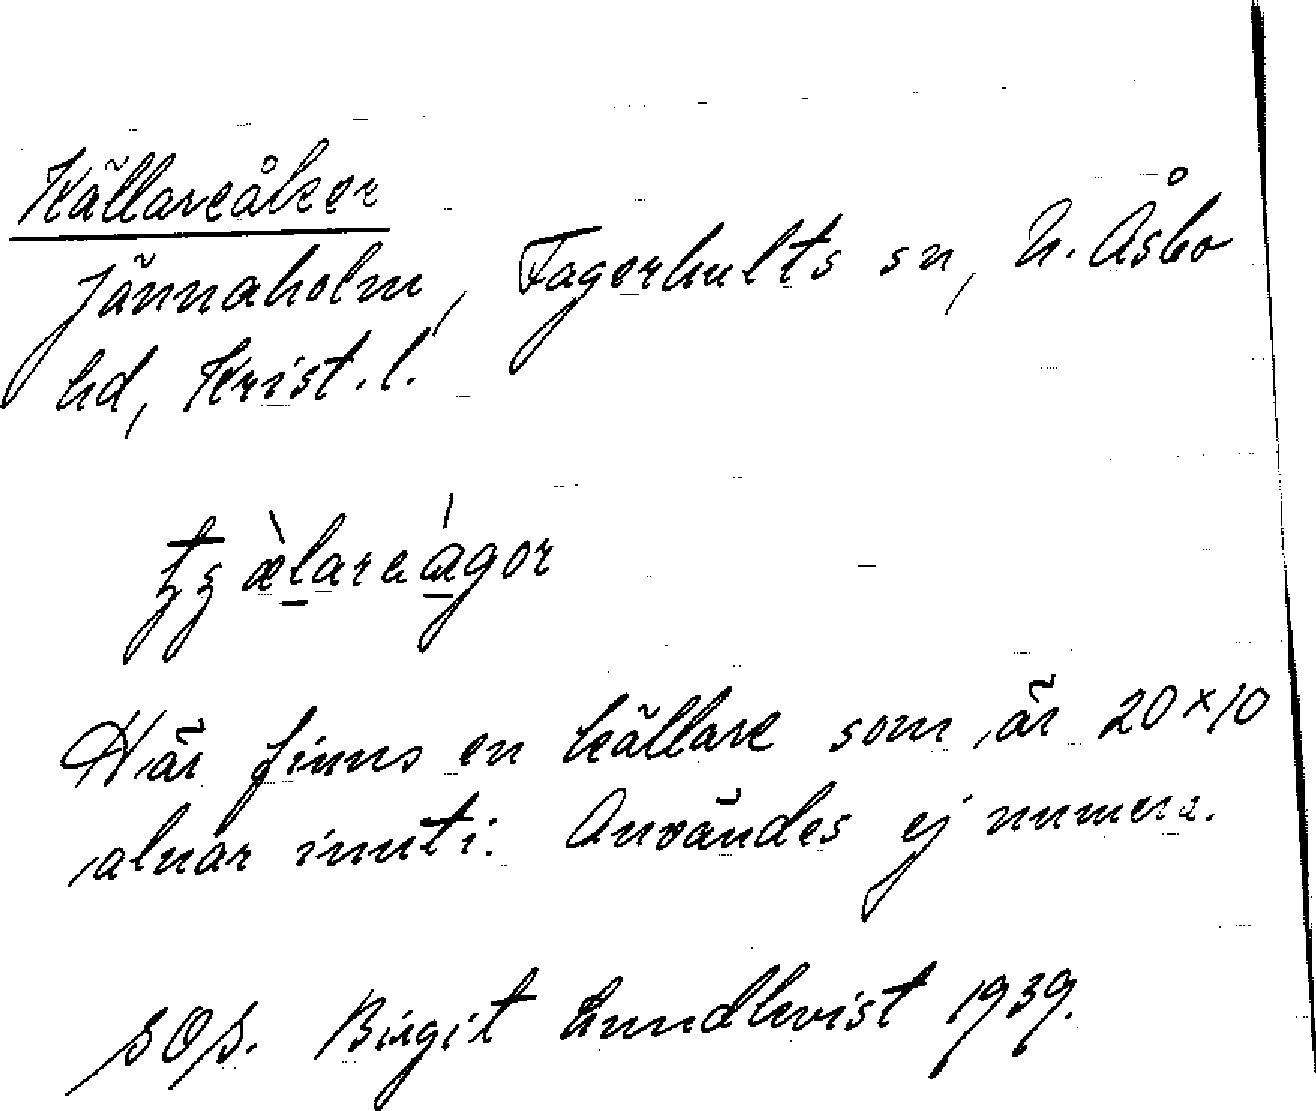 Källareåker
Jännaholm, Fagerhults sn, N. Åsbo
hd, Krist. l.
Här finns en källare som är 20×10
alnar inuti. Användes ej numera.
SOS. Birgit Lundkvist 1939.